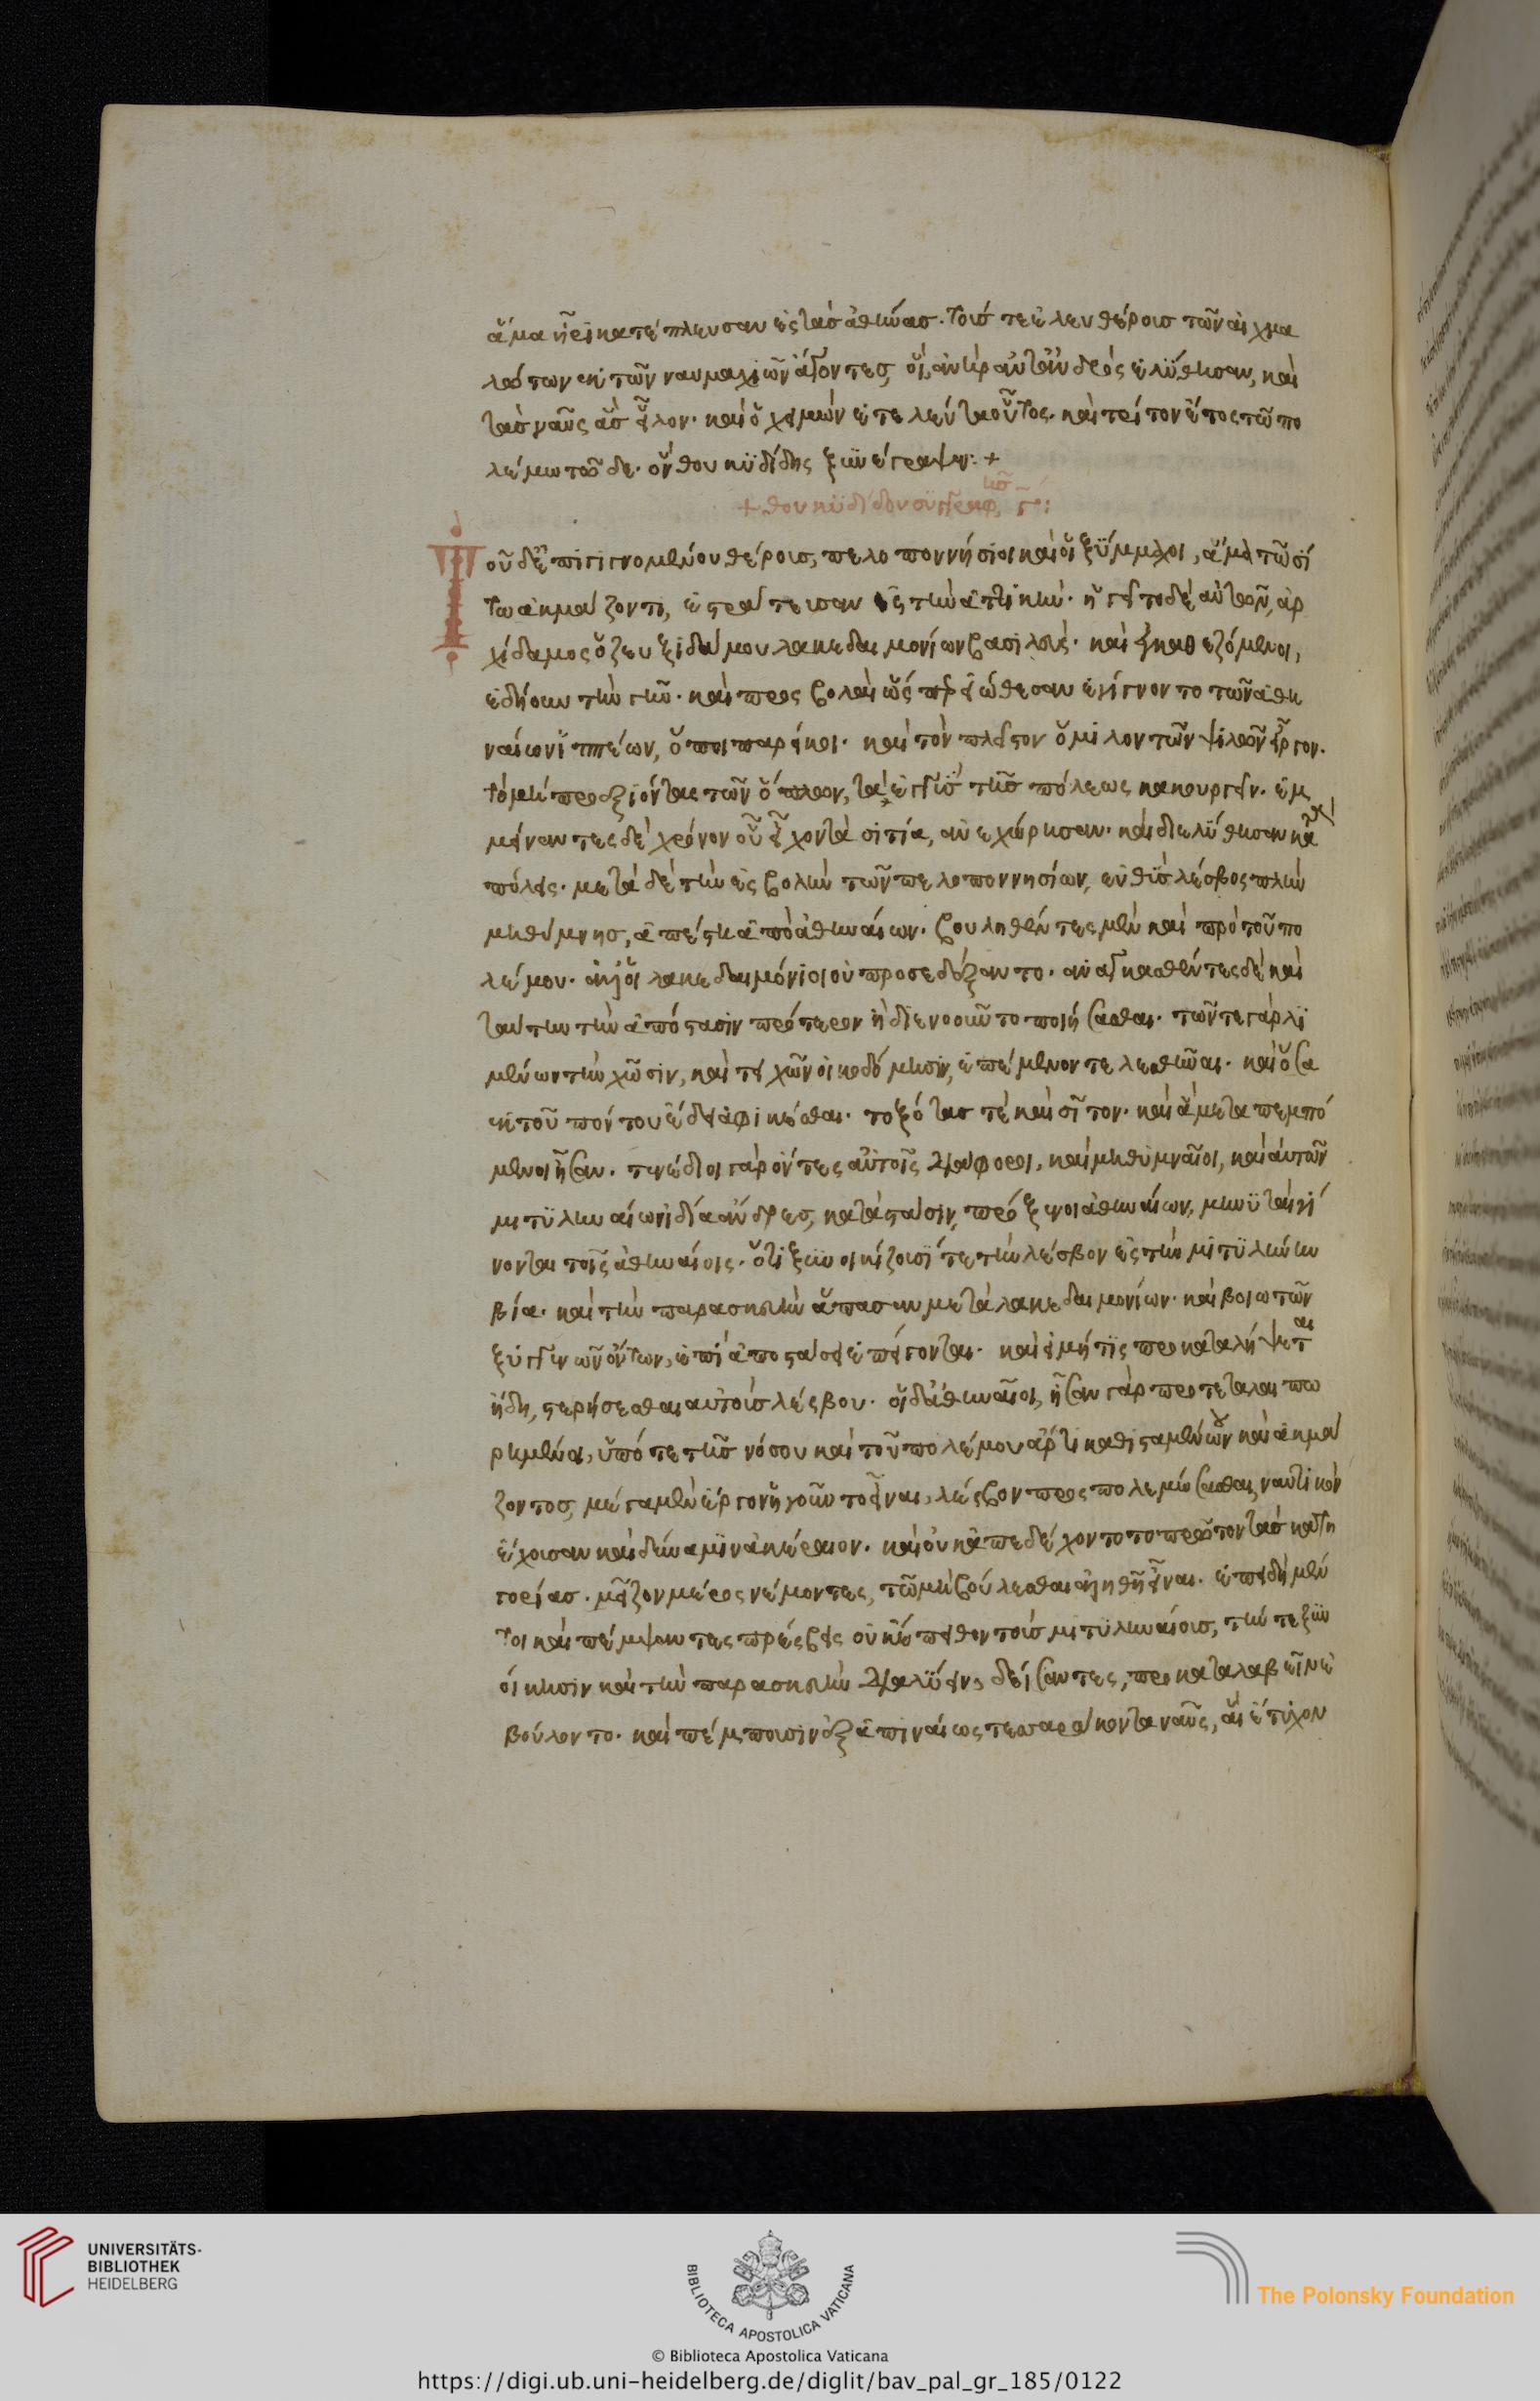 ἅμα ἦρι κατέπλευσαν ἐς τὰς ἀθήνας. τούς τε ἐλευθέρους τῶν αἰχμα
λώτων ἐκ τῶν ναυμαχιῶν ἄγοντες, οἳ ἀνὴρ ἀντ' ἀνδρὸς ἐλύθησαν, καὶ
τὰς ναῦς ἃς εἷλον. καὶ ὁ χειμὼν ἐτελεύτα οὗτος. καὶ τρίτον ἔτος τῷ πο
λέμω τῶδε. ὃν θουκυδίδης ξυνέγραψεν: +
+ θουκυδίδου συγγραφῆς γ':
Τοῦ δ' ἐπιγιγνομένου θέρους, πελοποννήσιοι καὶ οἱ ξύμμαχοι, ἅμα τῶ σί
τω ἀκμάζοντι, ἐστράτευσαν ἐς τὴν ἀττικήν. ἡγεῖτο δὲ αὐτῶν, ἀρ
χίδαμος ὁ ζευξιδάμου λακεδαιμονίων βασιλεύς. καὶ ἐγκαθεζόμενοι,
ἐδήουν τὴν γῆν. καὶ προσβολαὶ ὥσπερ εἰώθεσαν ἐγίγνοντο τῶν ἀθη
ναίων ἱππέων, ὅποι παρείκοι. καὶ τὸν πλεῖστον ὅμιλον τῶν ψιλῶν εἶργον.
τὸ μὴ προεξιόντας τῶν ὅπλων, τὰ ἐγγὺς τῆς πόλεως κακουργεῖν. ἐμ
μείναντες δὲ χρόνον οὗ εἶχον τὰ σιτία, ἀνεχώρησαν. καὶ διελύθησαν κατὰ
πόλεις. μετὰ δὲ τὴν ἐσβολὴν τῶν πελοποννησίων, εὐθὺς λέσβος πλὴν
μηθύμνης, ἀπέστη ἀπὸ ἀθηναίων. βουληθέντες μὲν καὶ πρὸ τοῦ πο
λέμου. ἀλλ' οἱ λακεδαιμόνιοι οὐ προσεδέξαντο. ἀναγκασθέντες δὲ καὶ
ταύτην τὴν ἀπόστασιν πρότερον ἢ διενοοῦντο ποιήσασθαι. τῶν τε γὰρ λι
μένων τὴν χῶσιν, καὶ τειχῶν οἰκοδόμησιν, ἐπέμενον τελεσθῆναι. καὶ ὅσα
ἐκ τοῦ πόντου ἔδει ἀφικέσθαι. τοξότας τὲ καὶ σῖτον. καὶ ἃ μεταπεμπό
μενοι ἦσαν. τενέδιοι γὰρ ὄντες αὐτοῖς διάφοροι, καὶ μηθυμναῖοι, καὶ αὐτῶν
μιτυληναίων ἰδία ἄνδρες, κατὰ στάσιν, πρόξενοι ἀθηναίων, μηνυταὶ γί
νονται τοῖς ἀθηναίοις. ὅτι ξυνοικίζουσί τε τὴν λέσβον ἐς τὴν μιτυλήνην
βία. καὶ τὴν παρασκευὴν ἅπασαν μετὰ λακεδαιμονίων. καὶ βοιωτῶν
ξυγγενῶν ὄντων, ἐπὶ ἀποστάσει ἐπείγονται. καὶ εἰ μή τις προκαταλήψεται
ἤδη, στερήσεσθαι αὐτοὺς λέσβου. οἱ δ' ἀθηναῖοι, ἦσαν γὰρ τεταλαιπω
ρημένοι, ὑπό τε τῆς νόσου καὶ τοῦ πολέμου ἄρτι καθισταμένου καὶ ἀκμά
ζοντος, μέγα μὲν ἔργον ἡγοῦντο εἶναι, λέσβον προσπολεμώσασθαι, ναυτικὸν
ἔχουσαν καὶ δύναμιν ἀκέραιον. καὶ οὐκ ἀπεδέχοντο τὸ πρῶτον τὰς κατη
γορίας. μεῖζον μέρος νέμοντες, τῶ μὴ βούλεσθαι ἀληθῆ εἶναι. ἐπειδὴ μέν
τοι καὶ πέμψαντες πρέσβεις οὐκ ἔπειθον τοὺς μιτυληναίους, τήν τε ξυν
οίκησιν καὶ τὴν παρασκευὴν διαλύειν, δείσαντες, προκαταλαβεῖν ἐ
βούλοντο. καὶ πέμπουσιν ἐξαπιναίως τεσσαράκοντα ναῦς, αἳ ἔτυχον
UNIVERSITÄTS-
BIBLIOTHEK
HEIDELBERG
BIBLIOTECA APOSTOLICA VATICANA
The Polonsky Foundation
© Biblioteca Apostolica Vaticana
https://digi.ub.uni-heidelberg.de/diglit/bav_pal_gr_185/0122